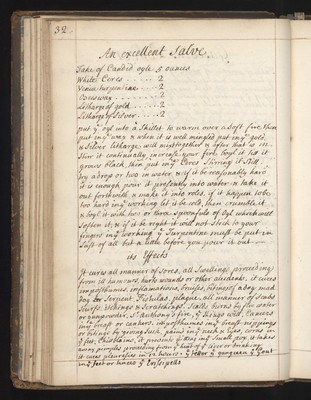 32
An excellent Salve
Take of Candid oyle 5 ounces
White Ceres ...... 2
Venis turpentine ... 2
Beeswax ........ 2
Litharg of gold ...... 2
Litharg of Silver ..... 2
put yᵉ oyl into a Skillet to warm over a soft fire, then
put in yᵉ wax & when it is well mingled put in yᵉ gold
& Silver litharge well mixt together & after that is in
Stir it continually, increase your fire, boyl it till it
grows black then put in yᵉ Ceres Stirring it Still
try a drop or two in water, & if it be reasonably hard
it is enough, pour it presently into water & take it
out forthwith & make it into roles, if it happen to be
too hard in yᵉ working let it be cold, then crumble it
& boyl it with two or three spoonfuls of oyl which will
soften it, & if it be right it will not Stick to your
fingers in yᵉ working yᵉ Turpentine must be put in
last of all but a little before you pour it out
its Effects
It cures all manner of sores, all Swellings proceeding
from it cancers, hurts wounds or other accidents, it cures
impostumes, inflamations, bruises, bitings of any mad
dog or Serpent, Fistulas, plague, all manner of Scabs
Scurfs, itchings & Scratchings, Scalls, burns by fire water
or gunpowder, Sᵗ Anthony's fire, & things wild, Cancers
in yᵉ breast or cankers, impostumes in yᵉ breast
or bitings by giving suck, pains in yᵉ neck & loins, corns in
yᵉ feet, Chilblains, it prevents pitting in yᵉ Small pox, it takes
away pimples proceeding from yᵉ heat of liver or drinking
it cures pleurisies in 12 hours - yᵉ tetter yᵉ gangreen yᵉ gout
in yᵉ feet or knees yᵉ Erisipelas